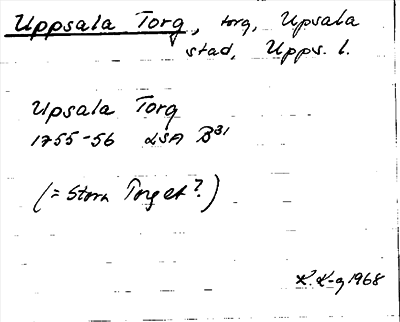 Uppsala Torg, torg, Upsala
stad, Upps. l.
Upsala Torg
1755-56 LSA B31
(= Stora Torget?)
K. K-g 1968